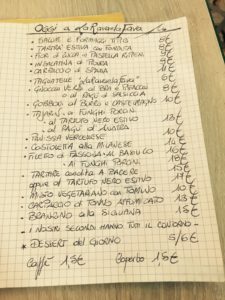 OGGI A LA RAVANDA FAVA
SALUMI E FORMAGGI TIPICI 8€
TARTRÀ ESTIVA CON FONDUTA 8€
FIORI DI ZUCCA IN PASTELLA RIPIENI
INSALATINA DI TROTA 9€
CARPACCIO DI SPADA
TAGLIATA 6€
GNOCCHI VERDI AL BRA E SPECK 8€
AL RAGÙ DI SALSICCIA
BURRO E
TAJARIN: AI FUNGHI PORCINI
AL TARTUFO NERO ESTIVO 13€
AL RAGÙ DI
PANISSA VERCELLESE 10€
COSTOLETTA ALLA MILANESE 12€
FILETTO DI FASSONA: AL BAROLO 16€
AI FUNGHI PORCINI 18€
TARTARE CONDITA A PIACERE 13€
OPPURE AL TARTUFO NERO ESTIVO
MISTO VEGETARIANO CON TOMINO 10€
CARPACCIO DI TONNO AFFUMICATO 13€
BRANZINO ALLA SICILIANA 15€
I NOSTRI SECONDI HANNO TUTTI IL CONTORNO
* DESSERT DEL GIORNO 5/6€
CAFFÈ 1,5€ COPERTO 1,5€